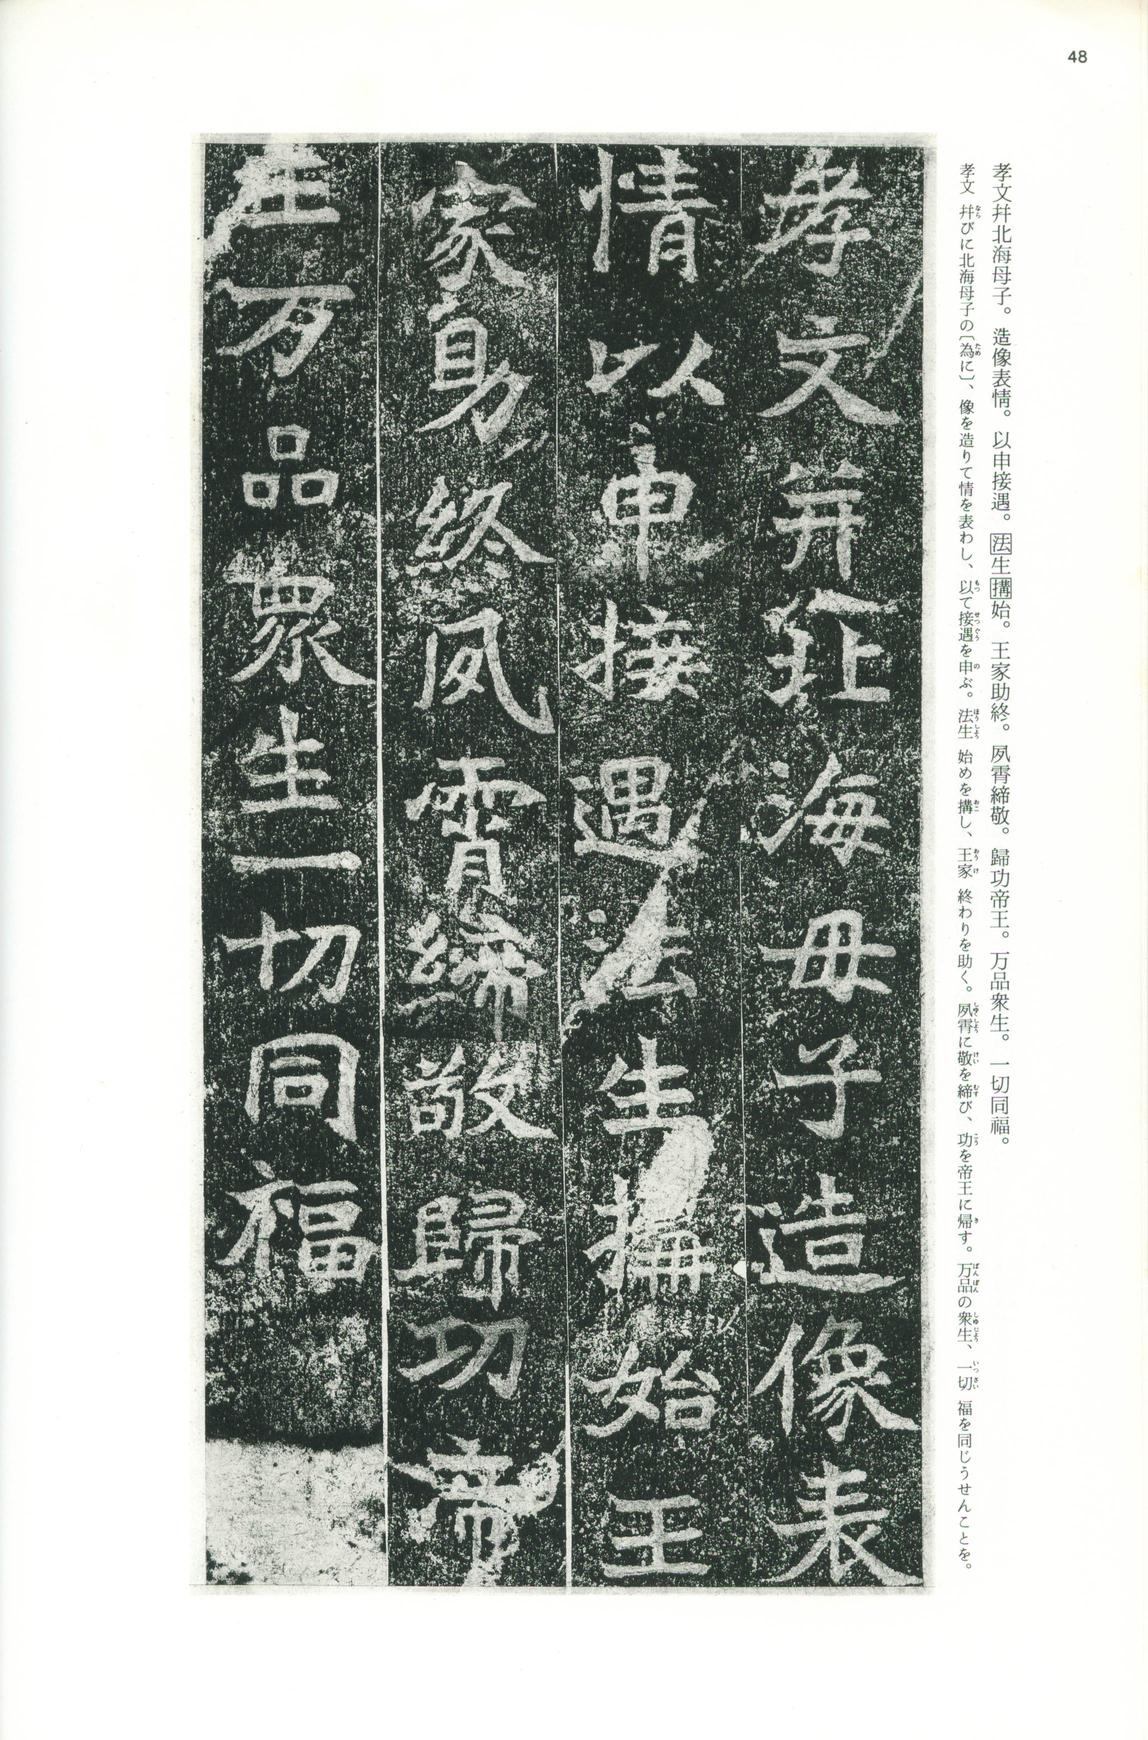 48
孝文幷北海母子。造像表情。以申接遇。法生搆始。王家助終。夙霄締敬。歸功帝王。万品衆生。一切同福。
孝文 幷びに北海母子の〔為に〕、像を造りて情を表わし、以て接遇を申ぶ。法生 始めを搆し、王家 終わりを助く。夙霄に敬を締び、功を帝王に帰す。万品の衆生、一切 福を同じうせんことを。
孝文幷北海母子造像表
情以申接遇法生搆始王
家助終夙霄締敬歸功帝
王万品衆生一切同福